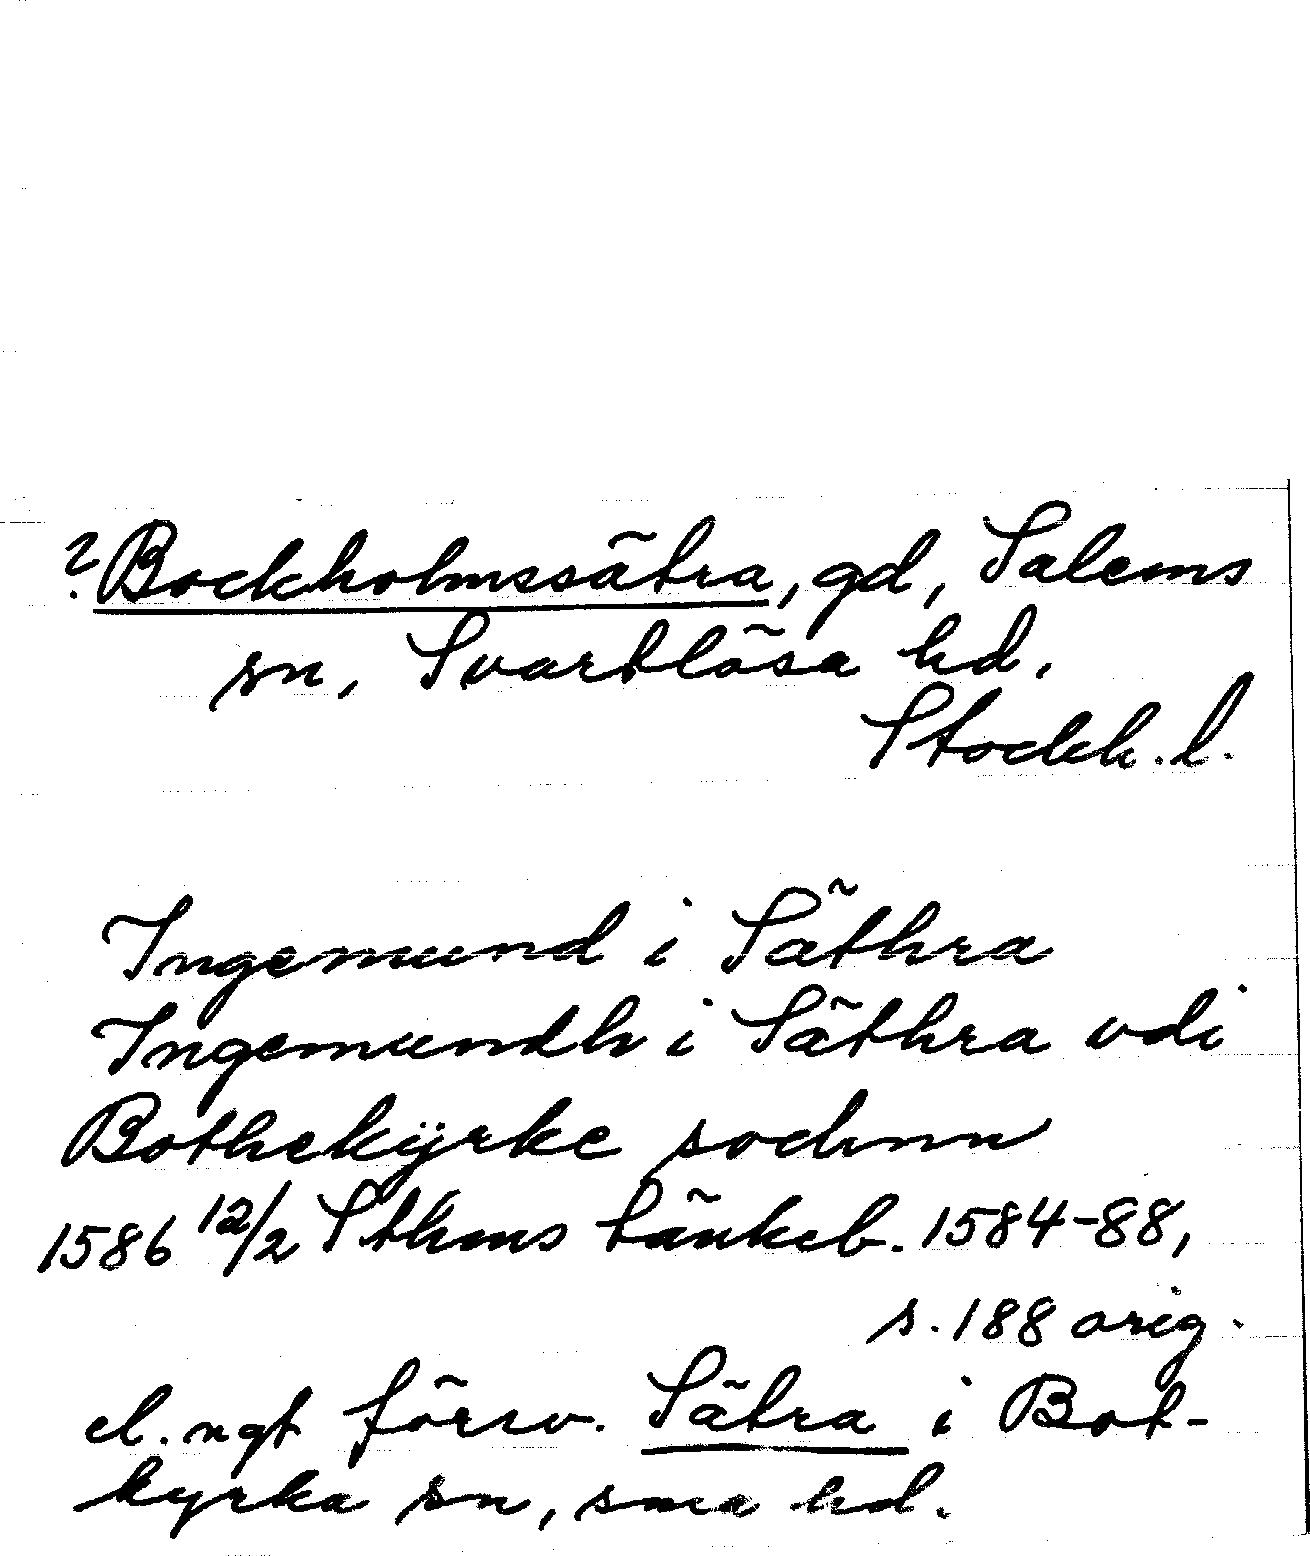 ? Bockholmssätra, gd, Salems
sn, Svartlösa hd,
Stockh. l.
Ingemund i Säthra
Ingemundh i Säthra vdi
Bothekÿrke sochnn
1586 12/2 Sthms tänkeb. 1584-88,
s. 188 orig.
el. ngt försv. Sätra i Bot-
kyrka sn, sma hd.